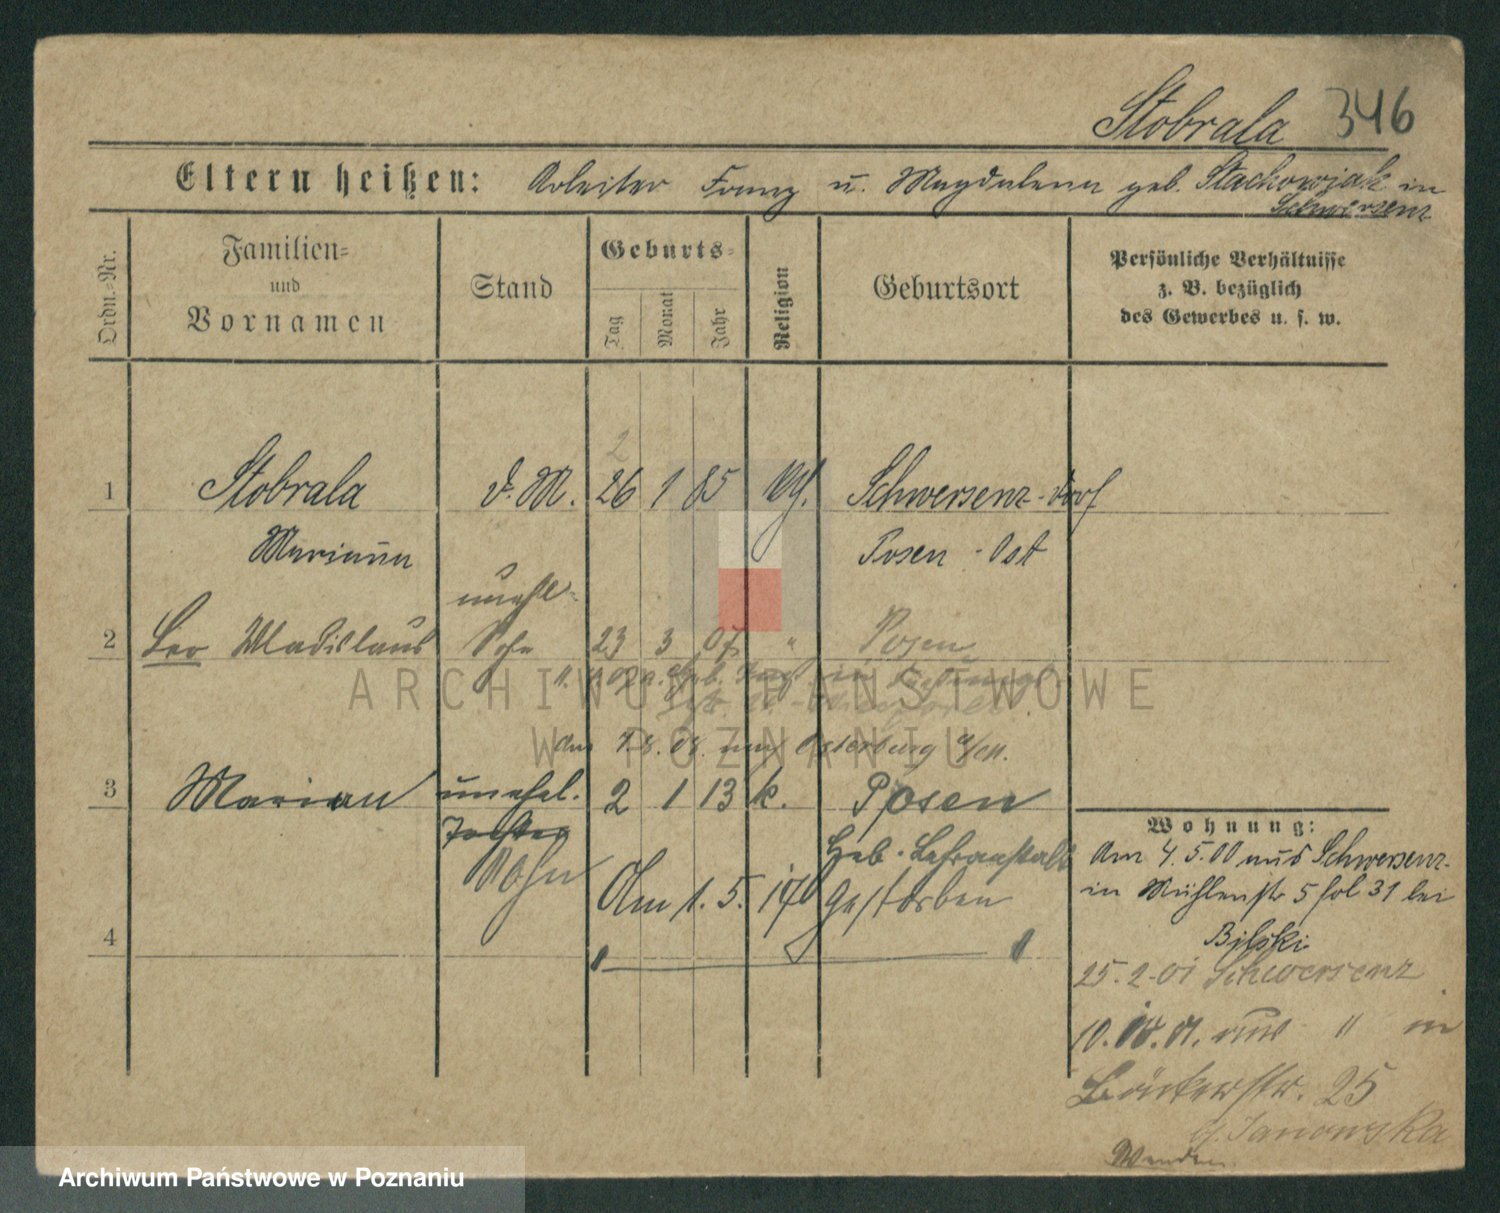 Stobrala 346
Eltern heißen: Arbeiter Franz u. Magdalena geb. Stachowjak in
Schwersenz
Ordn.-Nr.
Familien-
und
Vornamen
Stand
Geburts-
Tag
Monat
Jahr
Religion
Geburtsort
Persönliche Verhältnisse
z. B. bezüglich
des Gewerbes u. s. w.
1 Stobrala d. M. 26 1 85 Schwersenz-Dorf
2
Marianna Posen-Ost
unehl.
2 Leo Wladislaus Sohn 23 3 07 " Posen
am 7.8.08. Osterburg
3 Marian unehel. 2 1 13 k. Posen
Tochter
Sohn
Heb. Lehranstalt
Am 1. 5. gestorben
4
Wohnung:
Am 4.5.00 aus Schwersenz
in Mühlenstr 5 bei
Bilski
25.2.01 Schwersenz
10. aus " in
Bäckerstr. 25
Janowska
Wenden
ARCHIWUM PAŃSTWOWE
W POZNANIU
Archiwum Państwowe w Poznaniu